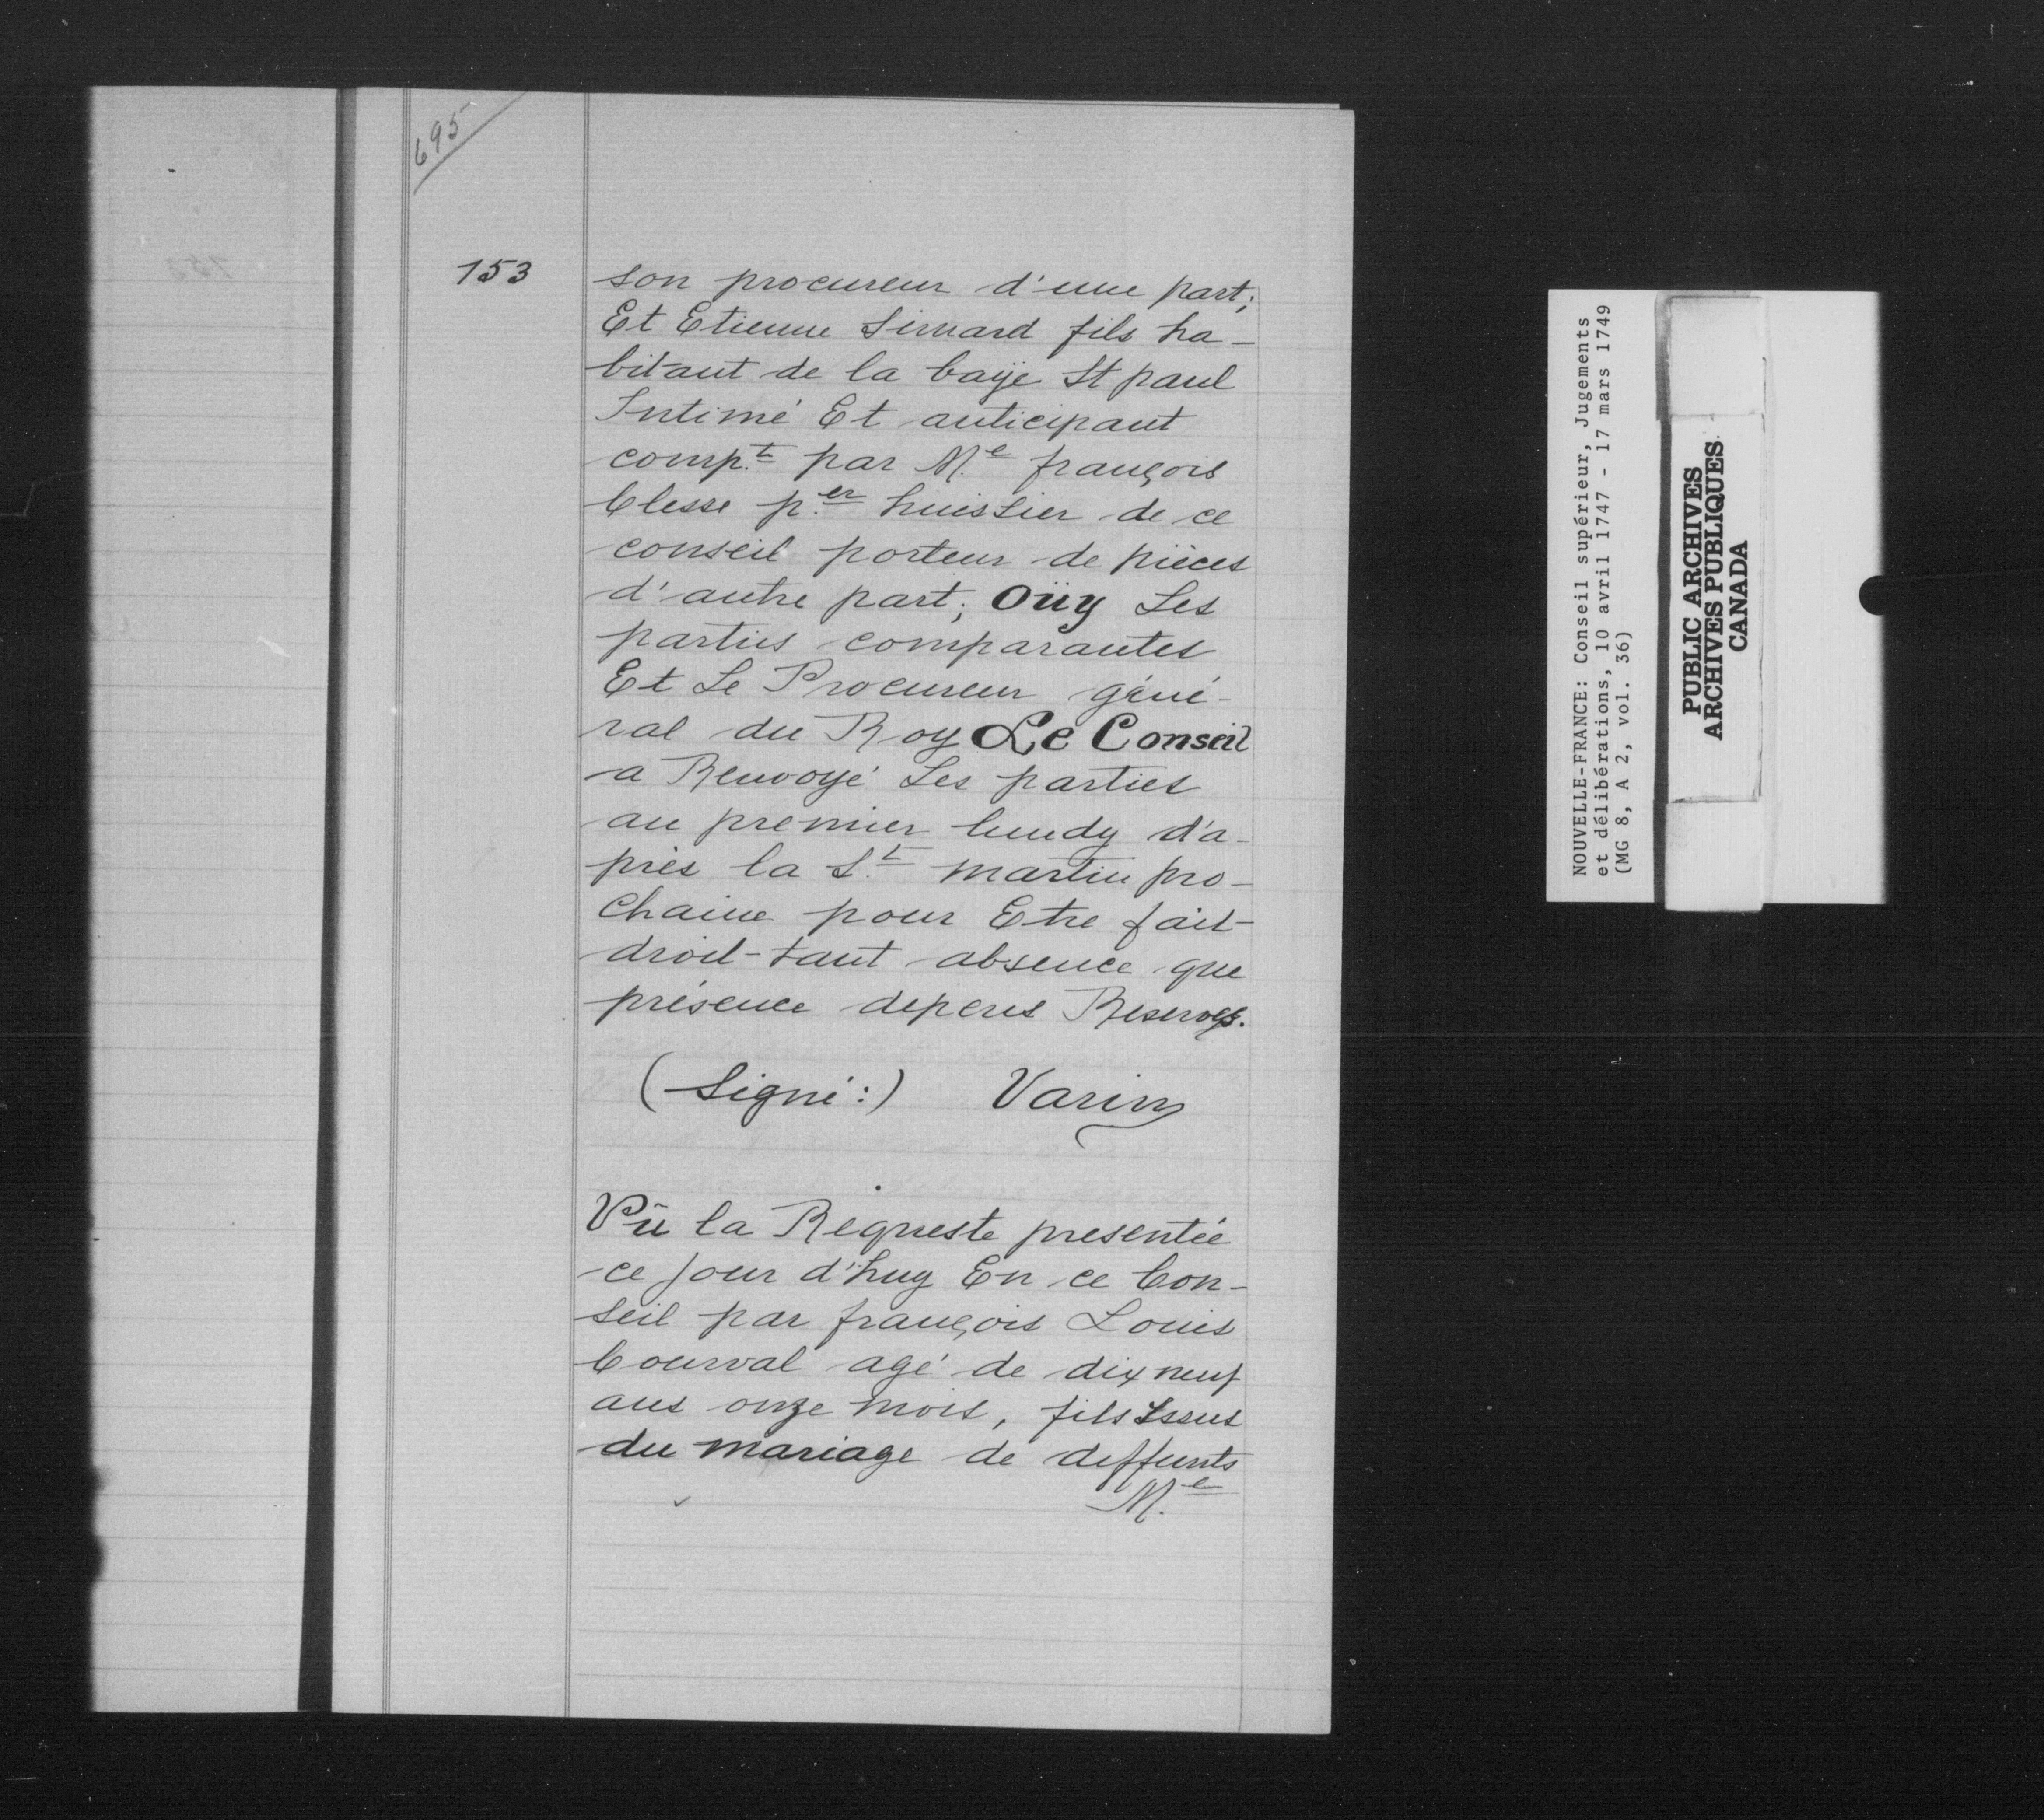 695
153
son procureur d'une part;
Et Etienne Simard fils ha-
bitant de la baÿe St paul
Intimé Et anticipant
comp.t par M.e françois
Clesse p.er huissier de ce
conseil porteur de pièces
d'autre part; Oüy Les
parties comparantes
Et Le Procureur géné-
ral du Roy Le Conseil
a Renvoyé Les parties
au premier lundy d'a-
près la S.t martin pro-
chaine pour Etre fait
droit tant absence que
présence depens Reservés.
(Signé:) Varin
Vû la Requeste presentée
ce jour d'huy En ce Con-
seil par françois Louis
Courval agé de dix neuf
ans onze mois, fils Issus
du mariage de deffunts
M.e
NOUVELLE-FRANCE: Conseil supérieur, Jugements
et délibérations, 10 avril 1747 - 17 mars 1749
(MG 8, A 2, vol. 36)
PUBLIC ARCHIVES
ARCHIVES PUBLIQUES
CANADA